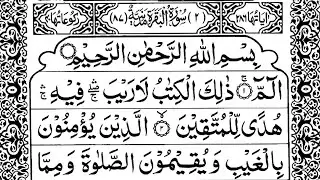 اٰيَاتُهَا ٢٨٦ (٢) سُوْرَةُ الْبَقَرَةِ مَدَنِيَّةٌ (٨٧) رُكُوْعَاتُهَا ٤٠
بِسْمِ اللّٰهِ الرَّحْمٰنِ الرَّحِيْمِ
الٓمّٓ ۚ ذٰلِكَ الْكِتٰبُ لَا رَيْبَ ۛ فِيْهِ ۛ
هُدًى لِّلْمُتَّقِيْنَ ۙ الَّذِيْنَ يُؤْمِنُوْنَ
بِالْغَيْبِ وَ يُقِيْمُوْنَ الصَّلٰوةَ وَ مِمَّا